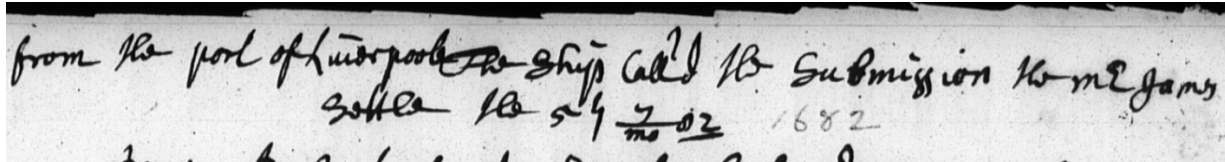 from the port of Liverpoole the ship Call'd the Submission the mr James
Settle the 5th 7/mo 82 1682